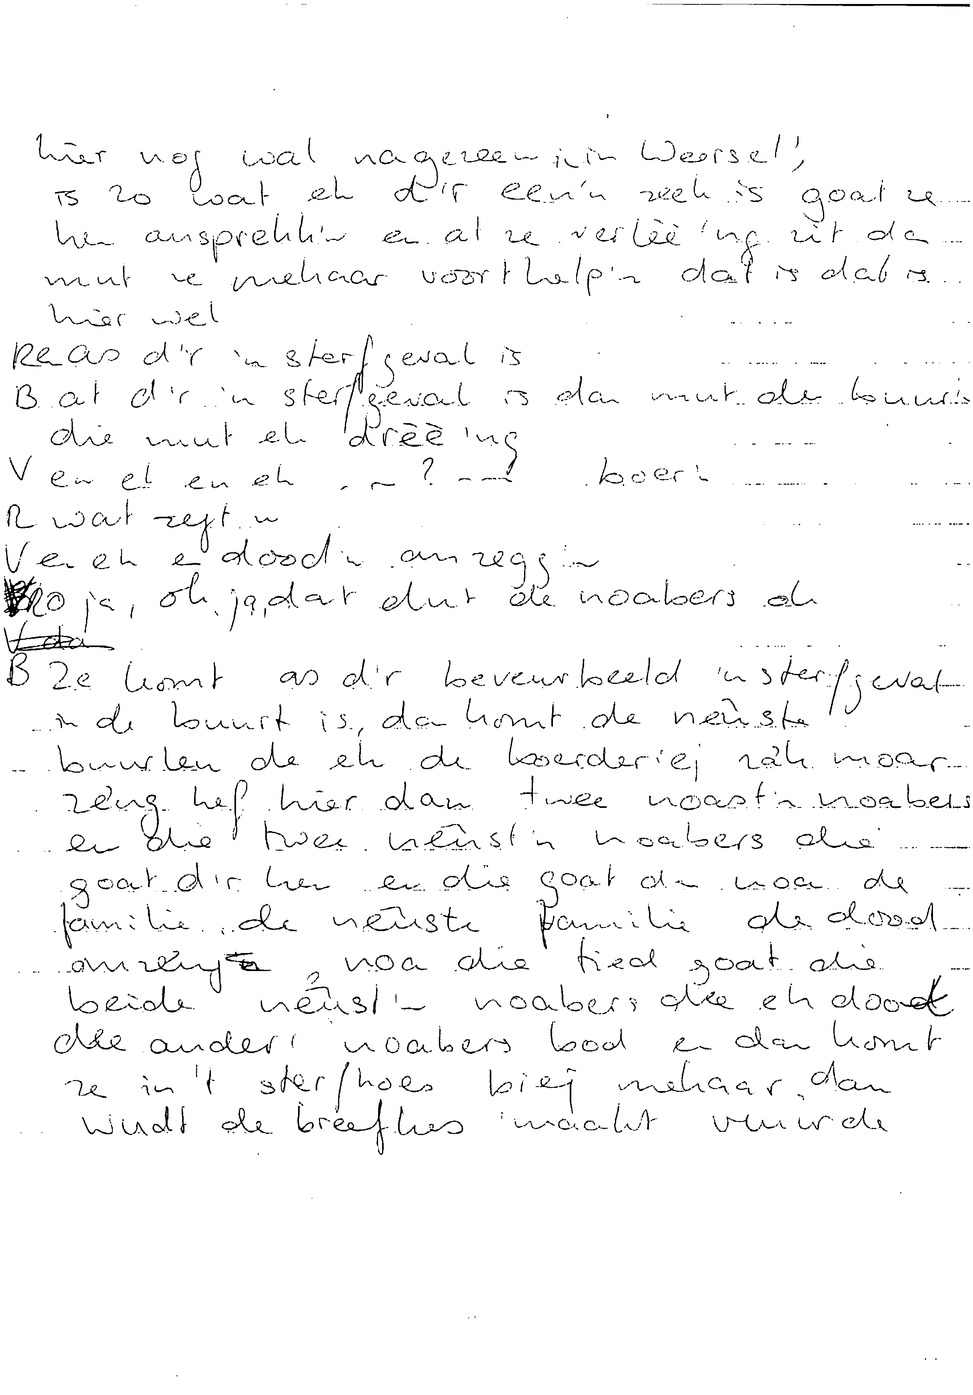 hier nog wal nagezeen in Weersel,
is zo wat eh d'r een'n zeek is goat ze
hen ansprekk'n en at ze verlèè'ng zit dan
mut ze mekaar voorthelp'n dat is dat is
hier wel
R en as d'r 'n sterfgeval is
B at d'r 'n sterfgeval is dan mut de buurt
die mut eh drèè'ng
V en et en eh . - ? - - boer'n
R wat zegt u
V en eh en dood'n anzegg'n
R o ja, oh ja, dat dut de noabers ok
V da
B Ze komt as d'r beveurbeeld 'n sterfgeval
in de buurt is, dan komt de nêûste
buurlen de eh de boerderiej zâk moar
zêng hef hier dan twee noast'n noabers
en die twee nêûst'n noabers die
goat d'r hen en die goat dn noa de
familie, de nêûste familie de dood
anzêng, noa die tied goat die
beide nêûst'n noabers die eh doot
die ander' noabers bod en dan komt
ze in 't sterfhoes biej mekaar, dan
wudt de breefkes maakt vuur de